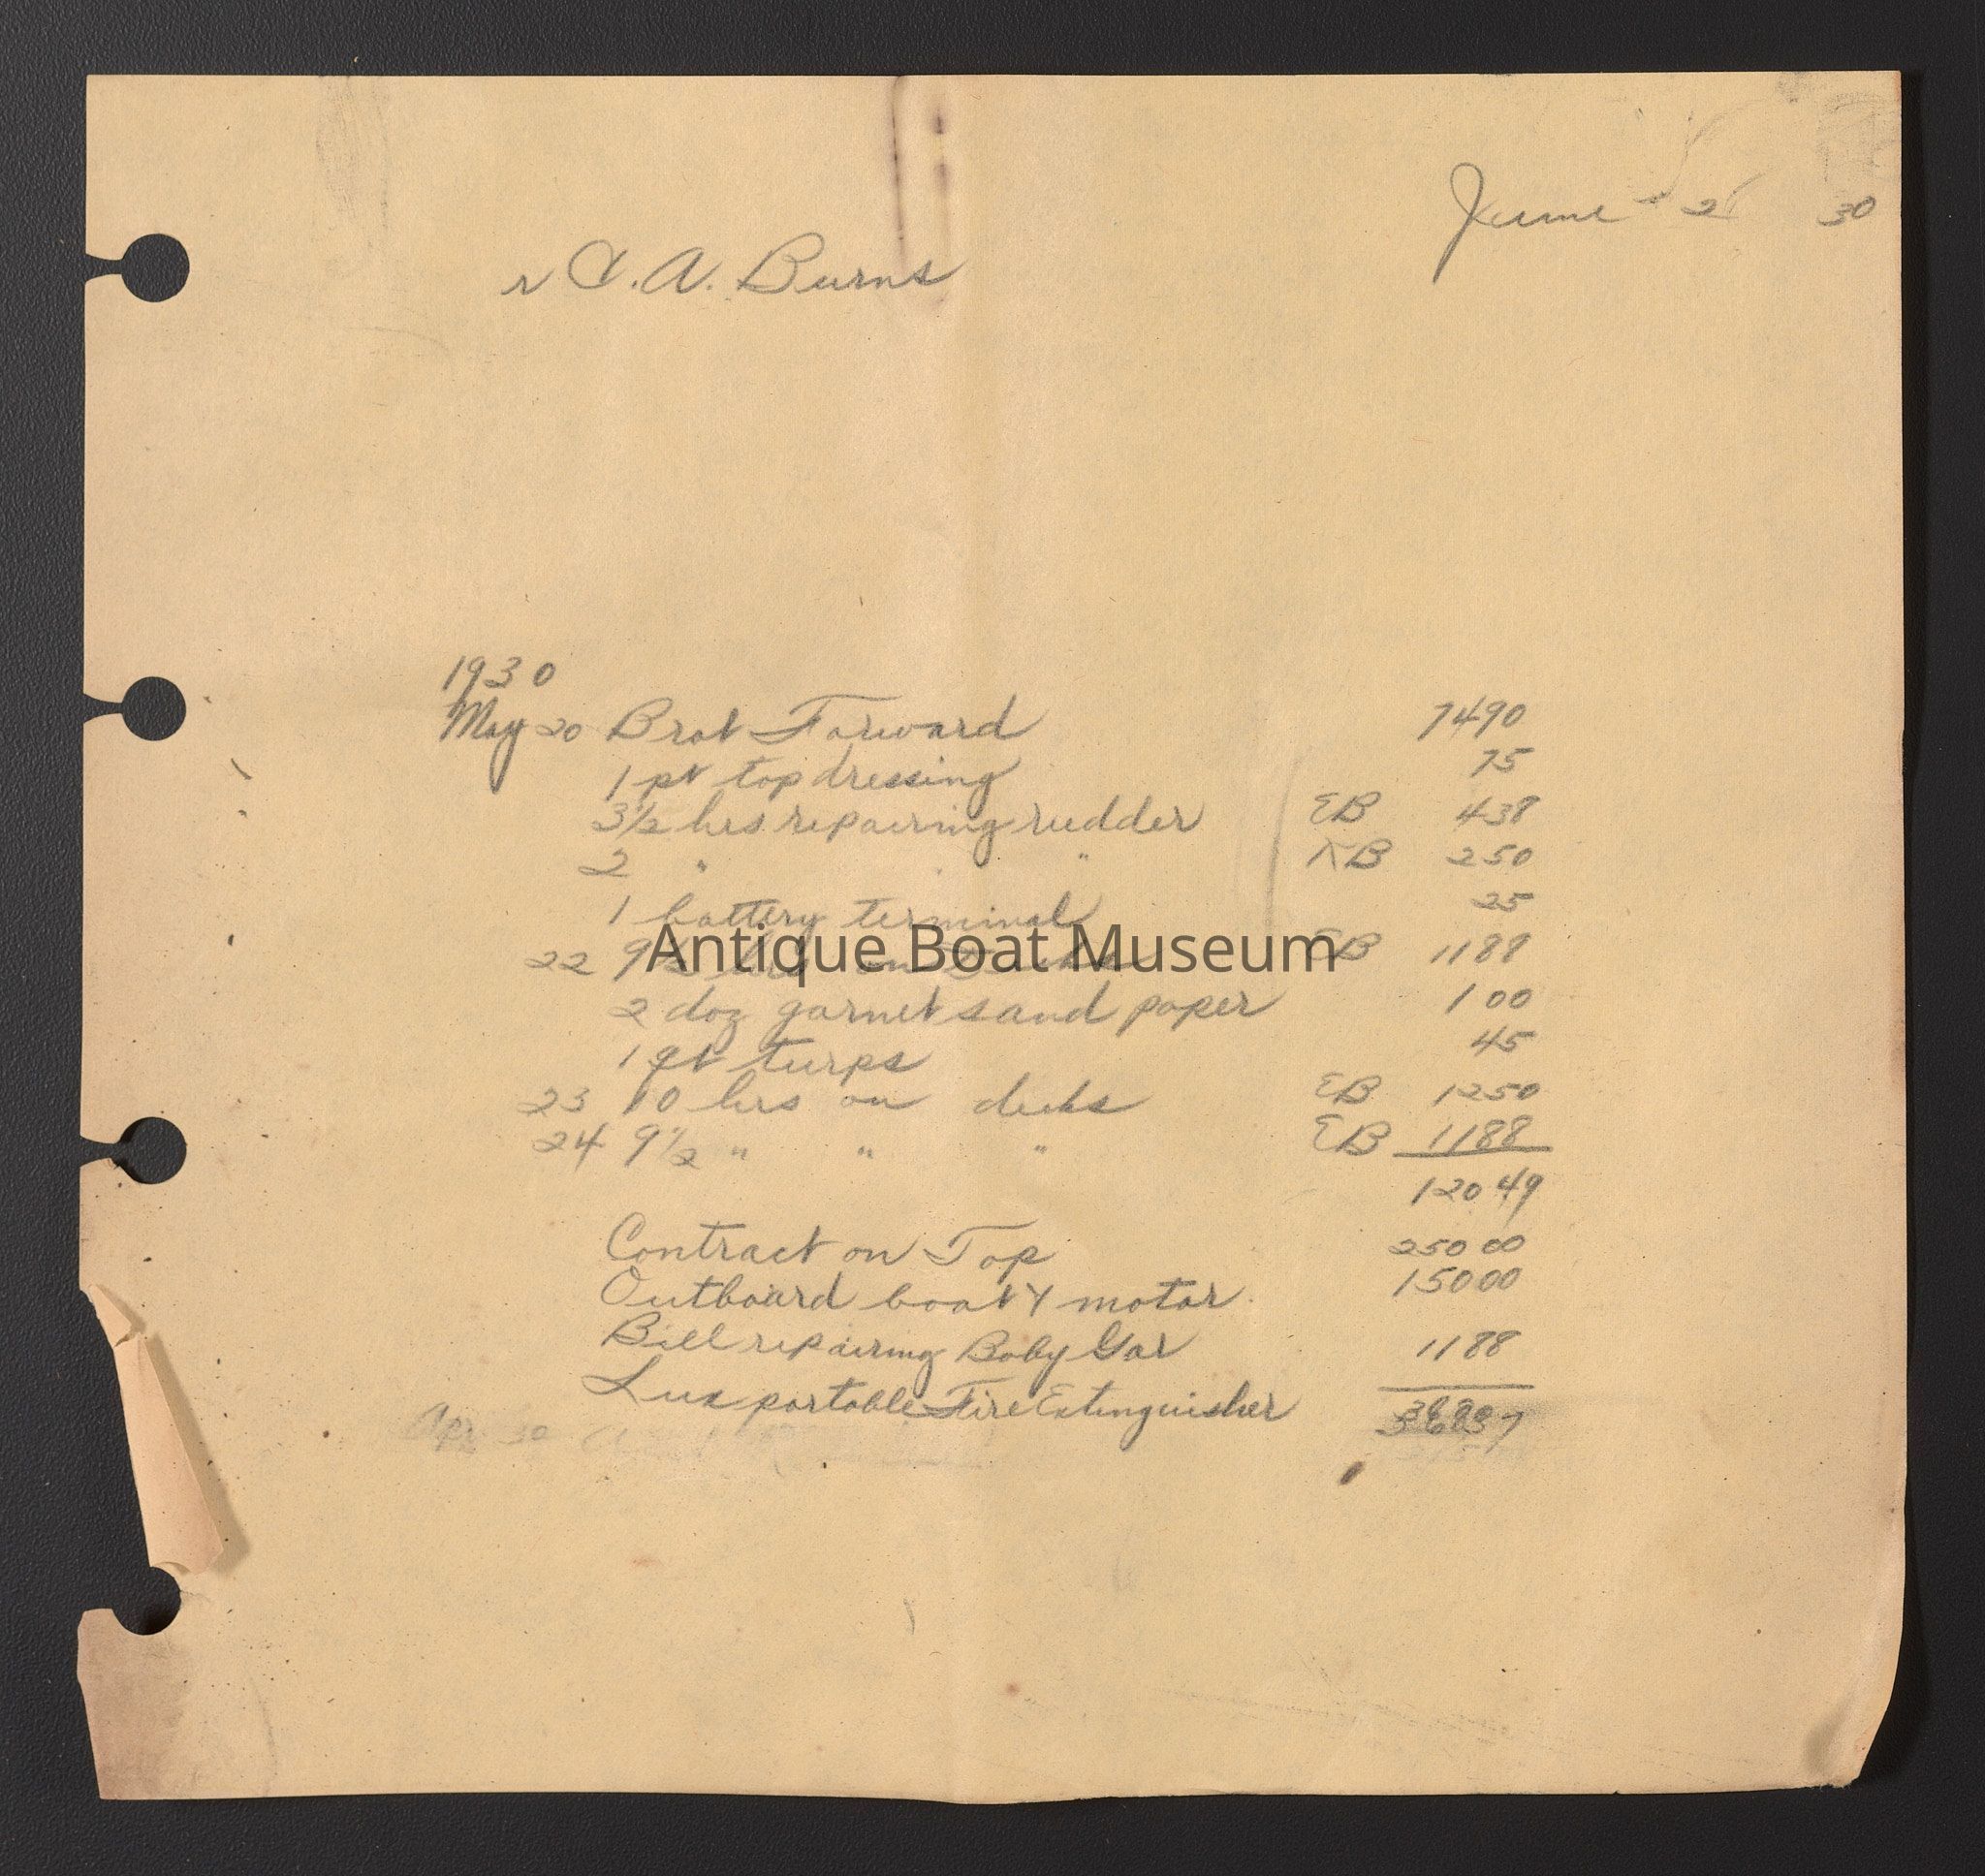 June - 2 30
r C. A. Burns
1930
May 20 Brot Forward 7490
1 pt top dressing 75
3½ hrs repairing rudder EB 438
2 " " KB 250
1 battery terminal 25
22 9½ hrs on decks EB 1188
Antique Boat Museum
2 doz garnet sand paper 1 00
1 qt turps 45
23 10 hrs on decks EB 1250
24 9½ " " " EB 1188
120 49
Contract on Top 250 00
Outboard boat & motor 15000
Bill repairing Baby Gar 1188
Lux portable Fire Extinguisher
Apr 30